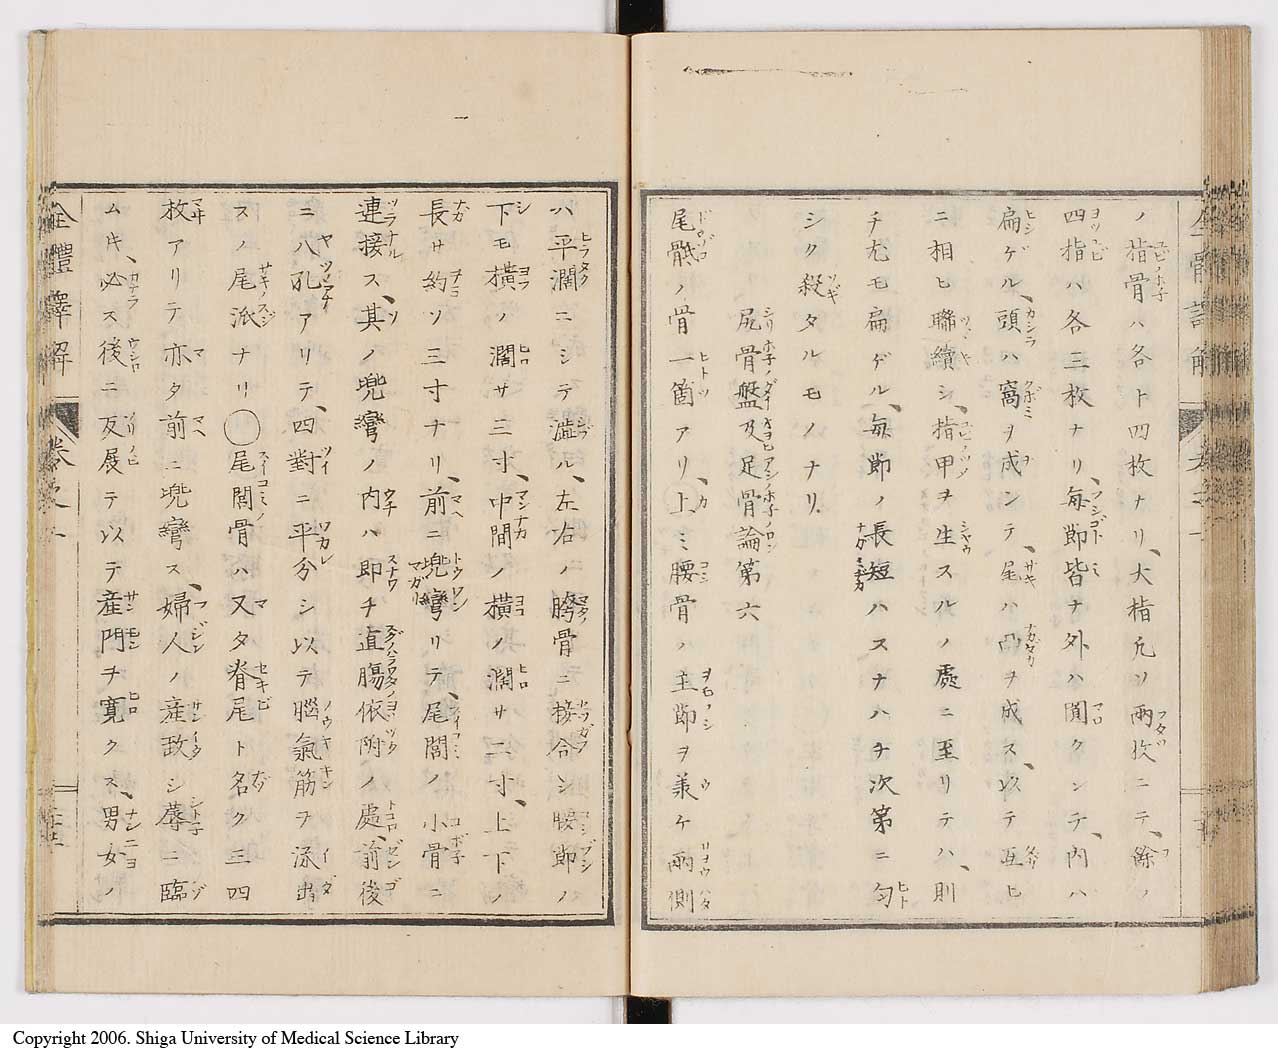 ノ指骨ハ各ト四枚ナリ、大指凢ソ兩枚ニテ、餘ノ
四指ハ各三枚ナリ毎節皆ナ外ハ圓クシテ、内ハ
扁ゲル、頭ハ窩ヲ成シテ、尾ハ凸ヲ成ス、以テ互ヒ
ニ相ヒ聯續シ、指甲ヲ生スルノ處ニ至リテハ、則
チ尤モ扁ゲル、毎節ノ長短ハスナハチ次第ニ匀
シク殺タルモノナリ
尻骨盤及足骨論第六
尾骶ノ骨一箇アリ、上ミ腰骨ハ主節ヲ兼ケ兩側
ハ平濶ニシテ澁ル、左右ノ胯骨ニ接合シ腰節ノ
下モ橫ノ濶サ三寸、中間ノ橫ノ濶サ二寸、上下ノ
長サ約ソ三寸ナリ、前ニ兠彎リテ、尾閭ノ小骨ニ
連接ス、其ノ兠彎ノ内ハ即チ直膓依附ノ處、前後
ニ八孔アリテ、四對ニ平分シ以テ腦氣筋ヲ泳出
スノ尾派ナリ○尾閭骨ハ又タ脊尾ト名ク三四
枚アリテ亦タ前ニ兠彎ス、婦人ノ産政シ蓐ニ臨
ムキ、必ス後ニ反展テ以テ産門チ寛クス、男女ノ
全體譯解
卷之
Copyright 2006. Shiga University of Medical Science Library